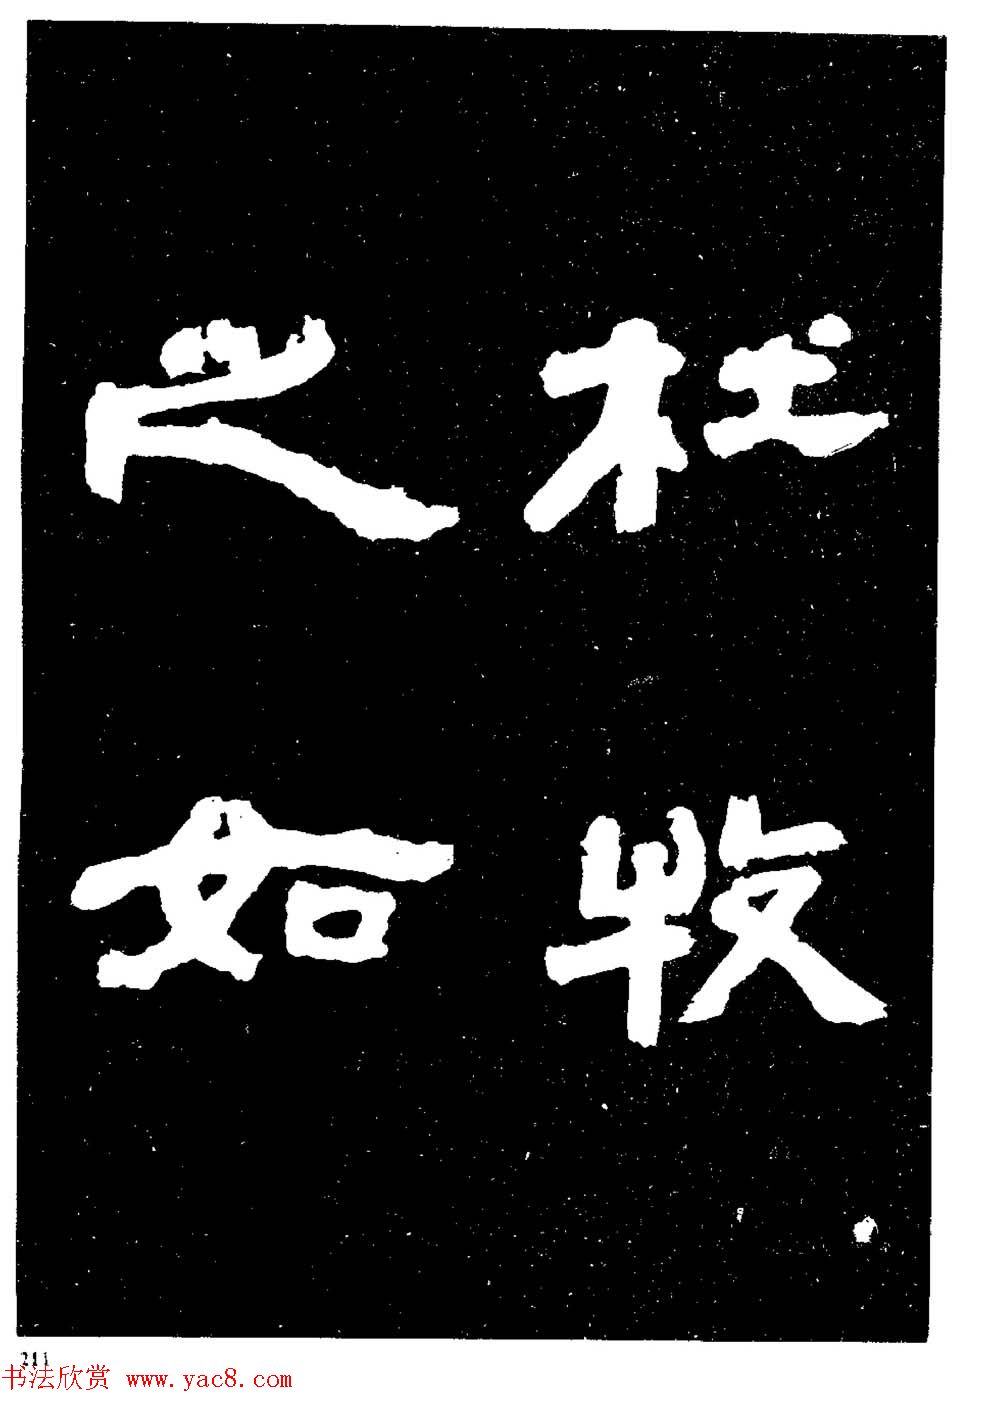 杜牧
之如
211
书法欣赏 www.yac8.com